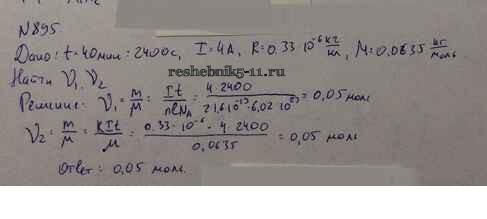 N895.
Дано: t=40мин=2400с, I=4А, R=0.33·10⁻⁶ кг/кл, M=0.0635 кг/моль.
reshebnik5-11.ru
Найти ν₁, ν₂
Решение: ν₁ = m/μ = It/(neN_A) = 4·2400/(2·1,6·10⁻¹⁹·6,02·10²³) = 0,05 моль
ν₂ = m/μ = kIt/μ = 0,33·10⁻⁶·4·2400/0,0635 = 0,05 моль
Ответ: 0,05 моль.